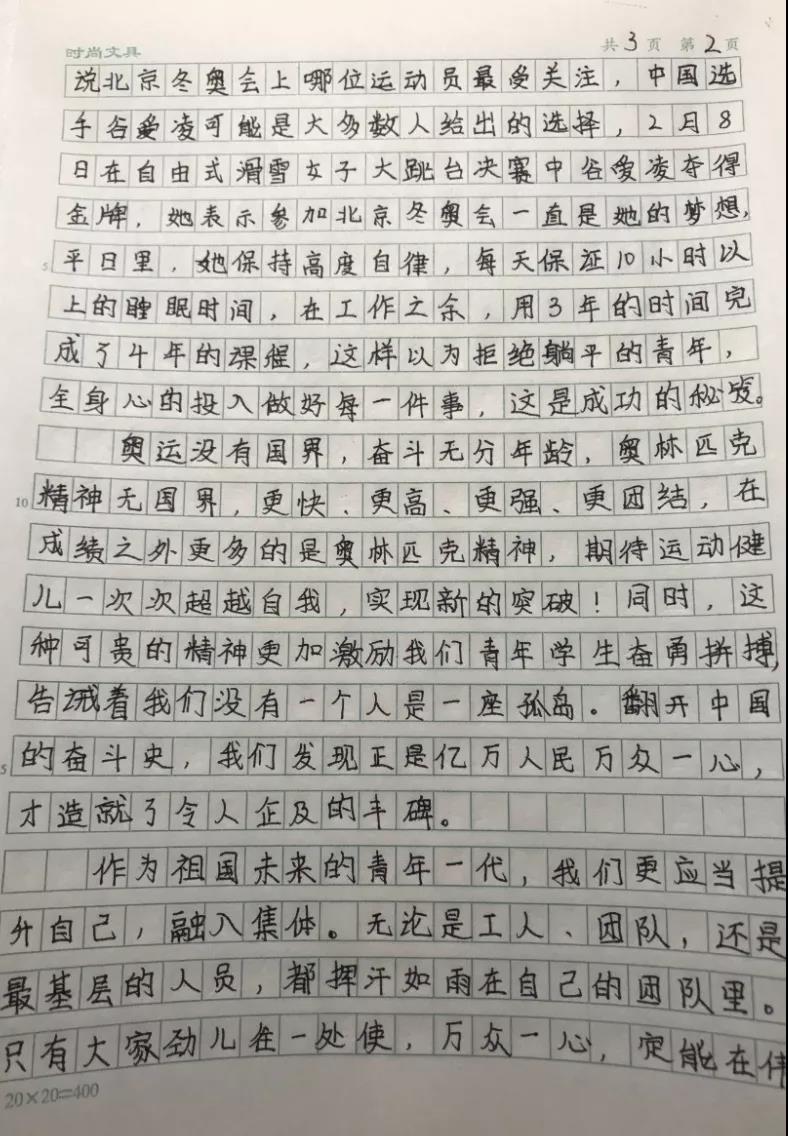 时尚文具 共3页 第2页
说北京冬奥会上哪位运动员最受关注，中国选
手谷爱凌可能是大多数人给出的选择，2月8
日在自由式滑雪女子大跳台决赛中谷爱凌夺得
金牌，她表示参加北京冬奥会一直是她的梦想，
5 平日里，她保持高度自律，每天保证10小时以
上的睡眠时间，在工作之余，用3年的时间完
成了4年的课程，这样以为拒绝躺平的青年，
全身心的投入做好每一件事，这是成功的秘诀。
奥运没有国界，奋斗无分年龄，奥林匹克
10 精神无国界，更快、更高、更强、更团结，在
成绩之外更多的是奥林匹克精神，期待运动健
儿一次次超越自我，实现新的突破！同时，这
种可贵的精神更加激励我们青年学生奋勇拼搏，
告诫着我们没有一个人是一座孤岛。翻开中国
5 的奋斗史，我们发现正是亿万人民万众一心，
才造就了令人企及的丰碑。
作为祖国未来的青年一代，我们更应当提
升自己，融入集体。无论是工人、团队，还是
最基层的人员，都挥汗如雨在自己的团队里。
只有大家劲儿往一处使，万众一心，定能在伟
20×20=400